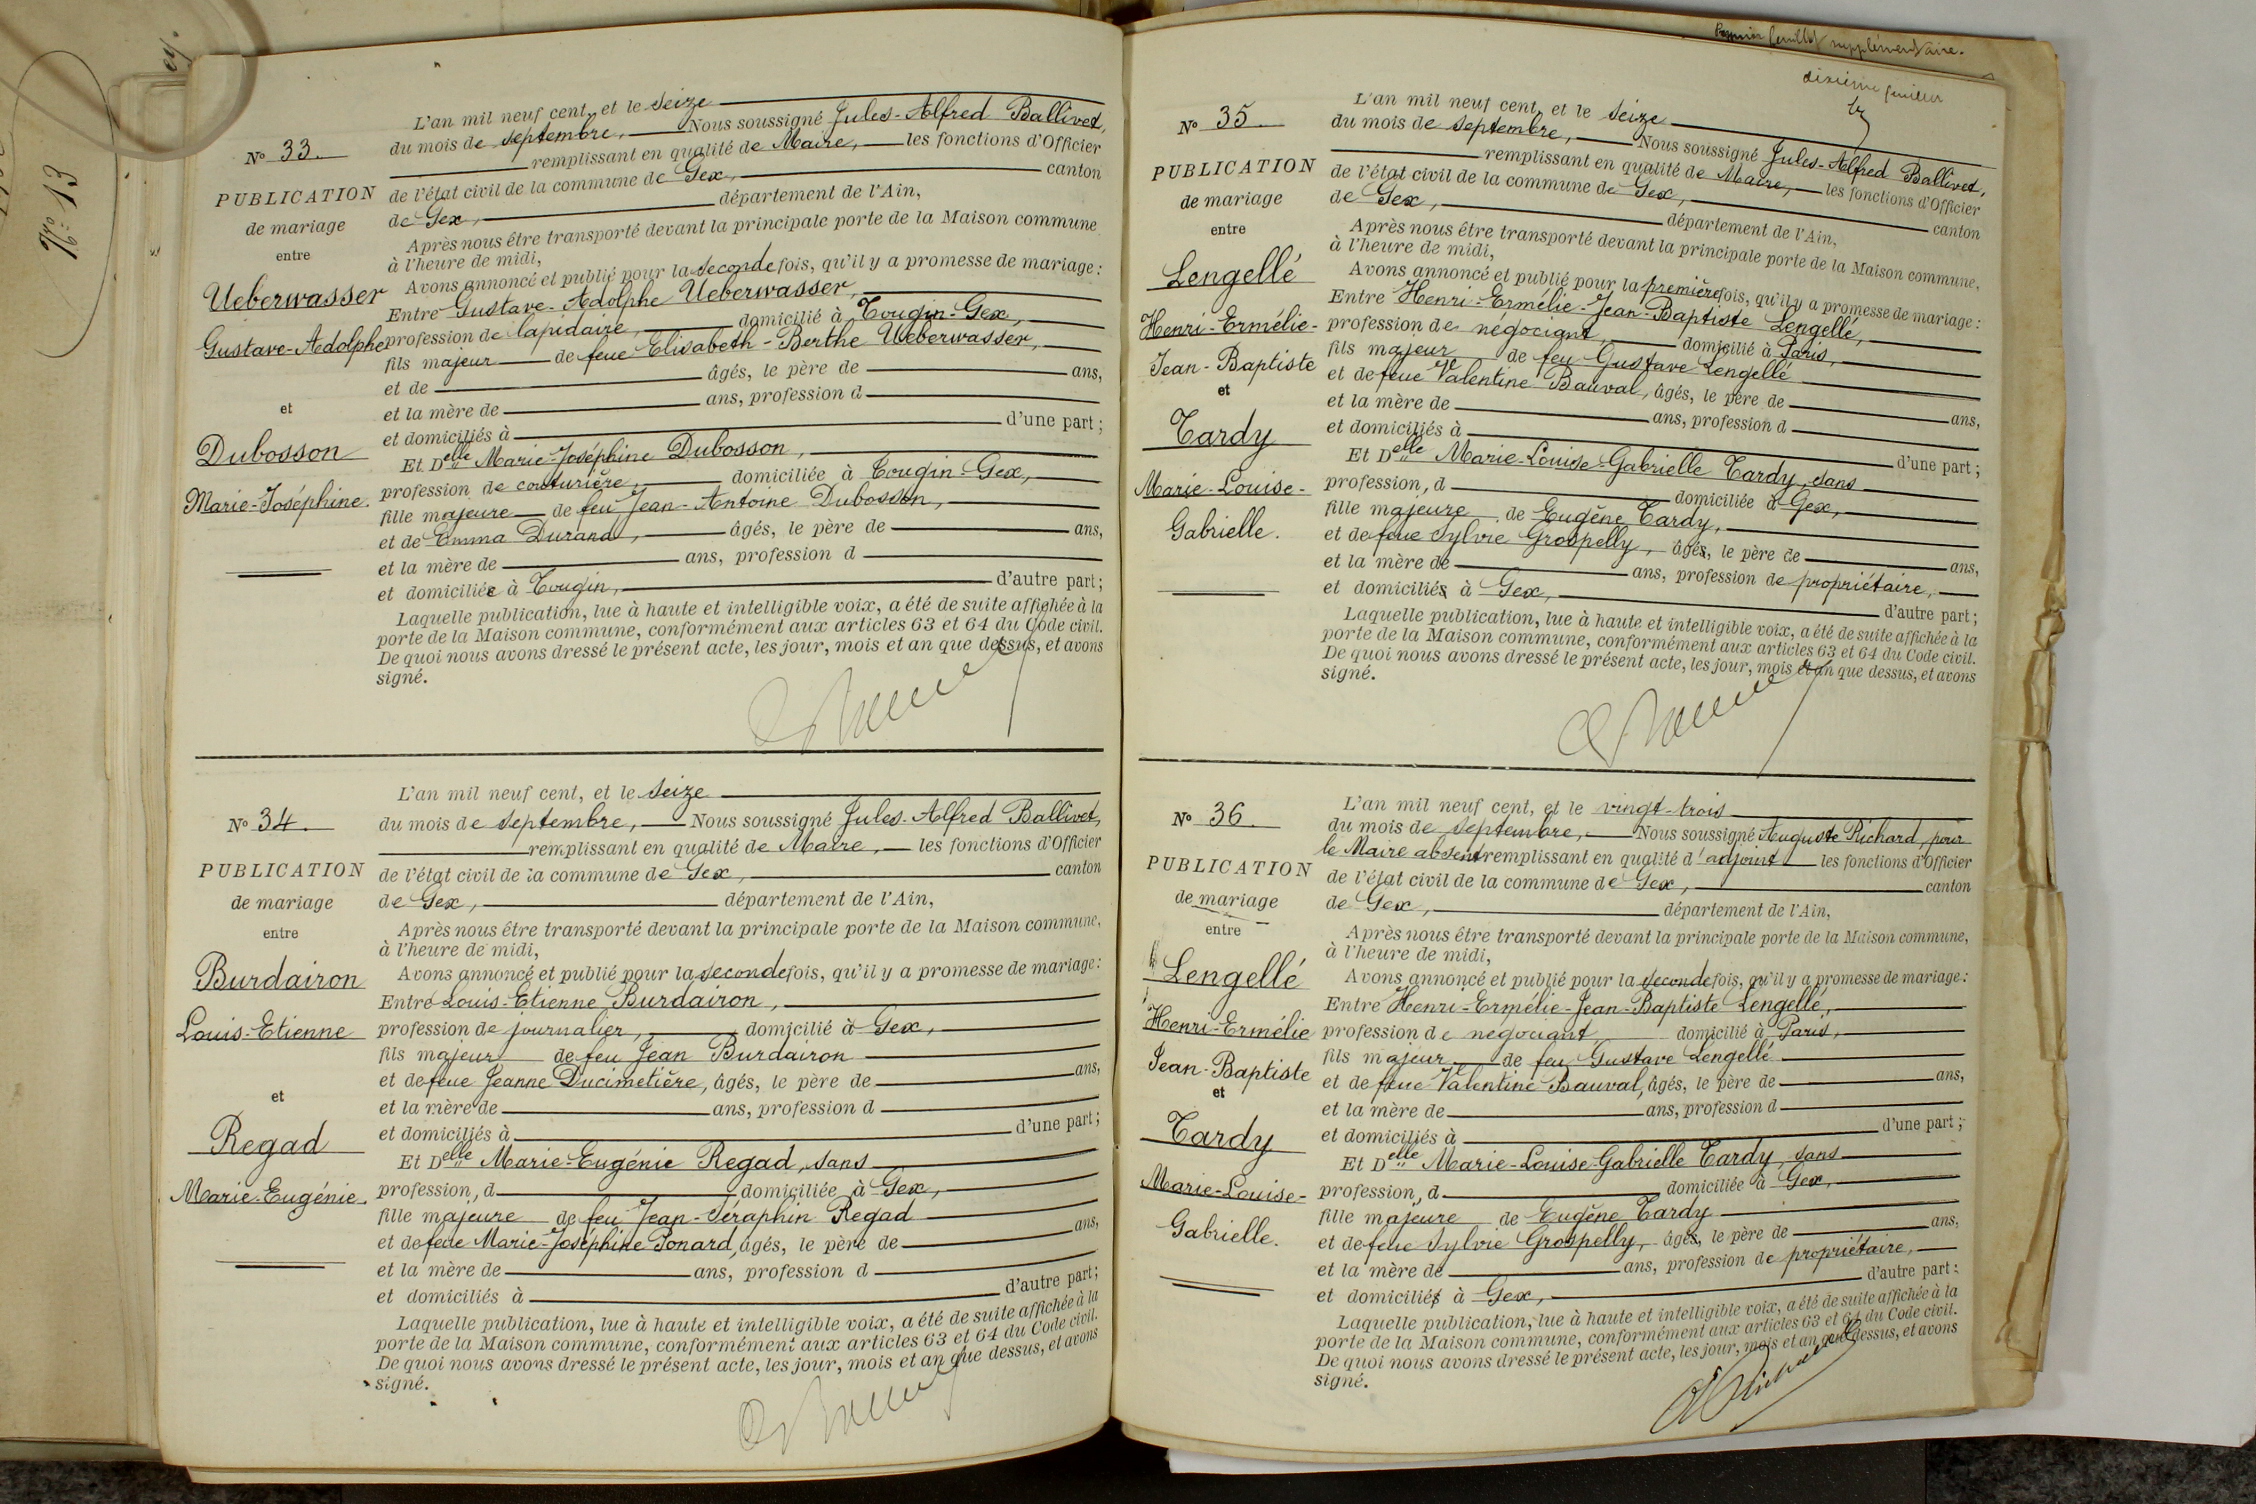 ey.
N.º 13
L'an mil neuf cent, et le seize
du mois de septembre, Nous soussigné Jules-Alfred Ballivet,
remplissant en qualité de Maire, les fonctions d'Officier
de l'état civil de la commune de Gex, canton
de Gex, département de l'Ain,
Après nous être transporté devant la principale porte de la Maison commune
à l'heure de midi,
Avons annoncé et publié pour la seconde fois, qu'il y a promesse de mariage :
Entre Gustave-Adolphe Ueberwasser,
profession de lapidaire, domicilié à Tougin-Gex,
fils majeur de feue Elisabeth-Berthe Ueberwasser,
et de âgés, le père de ans,
et la mère de ans, profession d
et domiciliés à d'une part ;
Et Delle Marie-Joséphine Dubosson,
profession de couturière, domiciliée à Tougin-Gex,
fille majeure de feu Jean-Antoine Dubosson,
et de Emma Durand, âgés, le père de ans,
et la mère de ans, profession d
et domiciliée à Tougin, d'autre part ;
Laquelle publication, lue à haute et intelligible voix, a été de suite affichée à la
porte de la Maison commune, conformément aux articles 63 et 64 du Code civil.
De quoi nous avons dressé le présent acte, les jour, mois et an que dessus, et avons
signé.
No 33.
PUBLICATION
de mariage
entre
Ueberwasser
Gustave-Adolphe
et
Dubosson
Marie-Joséphine.
L'an mil neuf cent, et le seize
du mois de septembre, Nous soussigné Jules-Alfred Ballivet,
remplissant en qualité de Maire, les fonctions d'Officier
de l'état civil de la commune de Gex, canton
de Gex, département de l'Ain,
Après nous être transporté devant la principale porte de la Maison commune,
à l'heure de midi,
Avons annoncé et publié pour la seconde fois, qu'il y a promesse de mariage :
Entre Louis-Etienne Burdairon,
profession de journalier, domicilié à Gex,
fils majeur de feu Jean Burdairon
et de feue Jeanne Ducimetière, âgés, le père de ans,
et la mère de ans, profession d
et domiciliés à d'une part ;
Et Delle Marie-Eugénie Regad, sans
profession, d domiciliée à Gex,
fille majeure de feu Jean-Séraphin Regad
et de feue Marie-Joséphine Ponard, âgés, le père de ans,
et la mère de ans, profession d
et domiciliés à d'autre part ;
Laquelle publication, lue à haute et intelligible voix, a été de suite affichée à la
porte de la Maison commune, conformément aux articles 63 et 64 du Code civil.
De quoi nous avons dressé le présent acte, les jour, mois et an que dessus, et avons
signé.
No 34.
PUBLICATION
de mariage
entre
Burdairon
Louis-Etienne
et
Regad
Marie-Eugénie.
Premier feuillet supplémentaire.
dixième feuillet
L'an mil neuf cent, et le seize
du mois de septembre, Nous soussigné Jules-Alfred Ballivet,
remplissant en qualité de Maire, les fonctions d'Officier
de l'état civil de la commune de Gex, canton
de Gex, département de l'Ain,
Après nous être transporté devant la principale porte de la Maison commune,
à l'heure de midi,
Avons annoncé et publié pour la première fois, qu'il y a promesse de mariage :
Entre Henri-Ermélie-Jean-Baptiste Lengellé,
profession de négociant, domicilié à Paris,
fils majeur de feu Gustave Lengellé
et de feue Valentine Bauval, âgés, le père de ans,
et la mère de ans, profession d
et domiciliés à d'une part ;
Et Delle Marie-Louise-Gabrielle Tardy, sans
profession, d domiciliée à Gex,
fille majeure de Eugène Tardy,
et de feue Sylvie Grospelly, âgés, le père de ans,
et la mère de ans, profession de propriétaire,
et domiciliés à Gex, d'autre part ;
Laquelle publication, lue à haute et intelligible voix, a été de suite affichée à la
porte de la Maison commune, conformément aux articles 63 et 64 du Code civil.
De quoi nous avons dressé le présent acte, les jour, mois et an que dessus, et avons
signé.
No 35.
PUBLICATION
de mariage
entre
Lengellé
Henri-Ermélie-
Jean-Baptiste
et
Tardy
Marie-Louise-
Gabrielle.
L'an mil neuf cent, et le vingt-trois
du mois de septembre, Nous soussigné Auguste Richard, pour
le Maire absent remplissant en qualité d'adjoint les fonctions d'Officier
de l'état civil de la commune de Gex, canton
de Gex, département de l'Ain,
Après nous être transporté devant la principale porte de la Maison commune,
à l'heure de midi,
Avons annoncé et publié pour la seconde fois, qu'il y a promesse de mariage :
Entre Henri-Ermélie-Jean-Baptiste Lengellé,
profession de négociant domicilié à Paris,
fils majeur de feu Gustave Lengellé
et de feue Valentine Bauval, âgés, le père de ans,
et la mère de ans, profession d
et domiciliés à d'une part ;
Et Delle Marie-Louise-Gabrielle Tardy, sans
profession, d domiciliée à Gex,
fille majeure de Eugène Tardy
et de feue Sylvie Grospelly, âgés, le père de ans,
et la mère de ans, profession de propriétaire,
et domiciliés à Gex, d'autre part ;
Laquelle publication, lue à haute et intelligible voix, a été de suite affichée à la
porte de la Maison commune, conformément aux articles 63 et 64 du Code civil.
De quoi nous avons dressé le présent acte, les jour, mois et an que dessus, et avons
signé.
No 36.
PUBLICATION
de mariage
entre
Lengellé
Henri-Ermélie
Jean-Baptiste
et
Tardy
Marie-Louise-
Gabrielle.